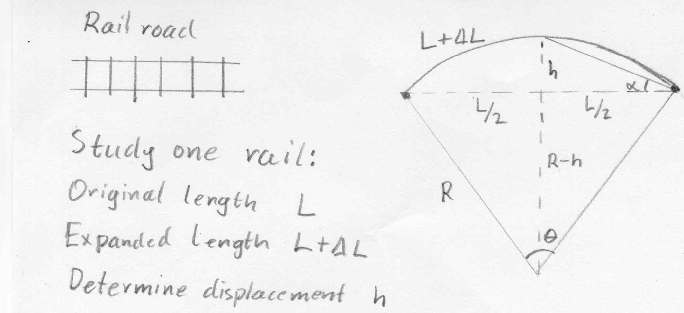 Rail road
Study one rail:
Original length L
Expanded length L+ΔL
Determine displacement h
L+ΔL
h
α
L/2
L/2
R-h
R
θ